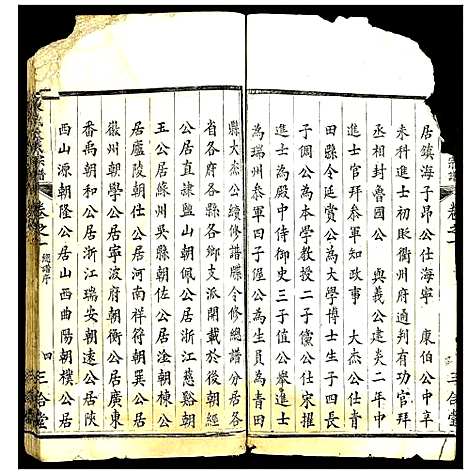 居鎮海子昂公仕海寧　康伯公中辛
未科進士初貶衢州府通判有功官拜
丞相封魯國公　與義公建炎二年中
進士官拜叅知政事　大杰公仕青
田縣令廷賞公為大學博士生子四長
子倜公為本學教授二子儻公仕宋擢
進士為殿中侍御史三子值公舉進士
為瑞州叅軍四子偓公為生員為青田
縣大杰公續修譜牒令修總譜分居各
省各府各縣各鄉支派開載於後朝
公居直隷盬山朝佩公居浙江慈谿朝
玉公居蘇州吳縣朝佐公居淦朝棟公
居廬陵朝仕公居河南祥符朝巽公居
徽州朝學公居寧波府朝衡公居廣東
番禺朝和公居浙江瑞安朝遠公居陝
西山源朝隆公居山西曲陽朝樸公居
宗譜
卷之一
總譜序
四
三合堂
三合堂